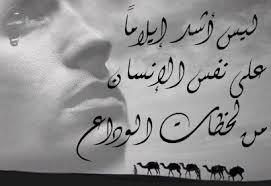 ليس أشد إيلاماً
على نفس الإنسان
من لحظات الوداع